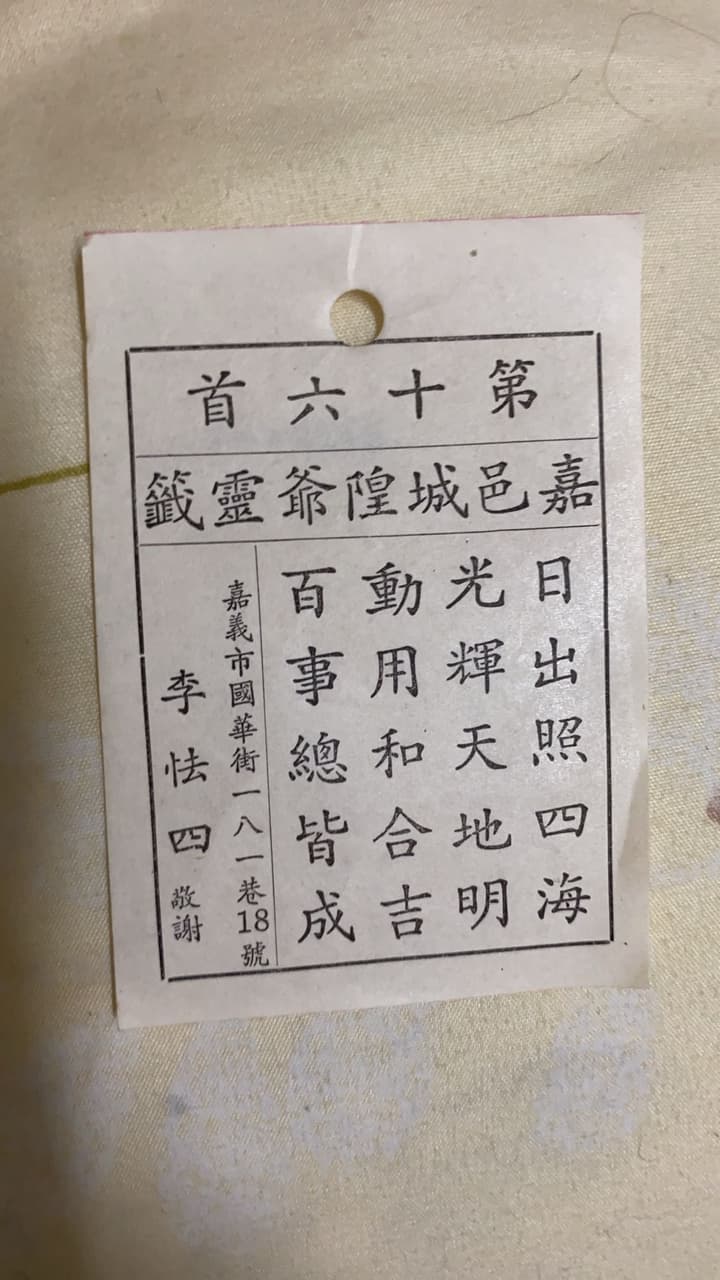 第十六首
嘉邑城隍爺靈籤
日出照四海
光輝天地明
動用和合吉
百事總皆成
嘉義市國華街一八一巷18號
李怯四敬謝